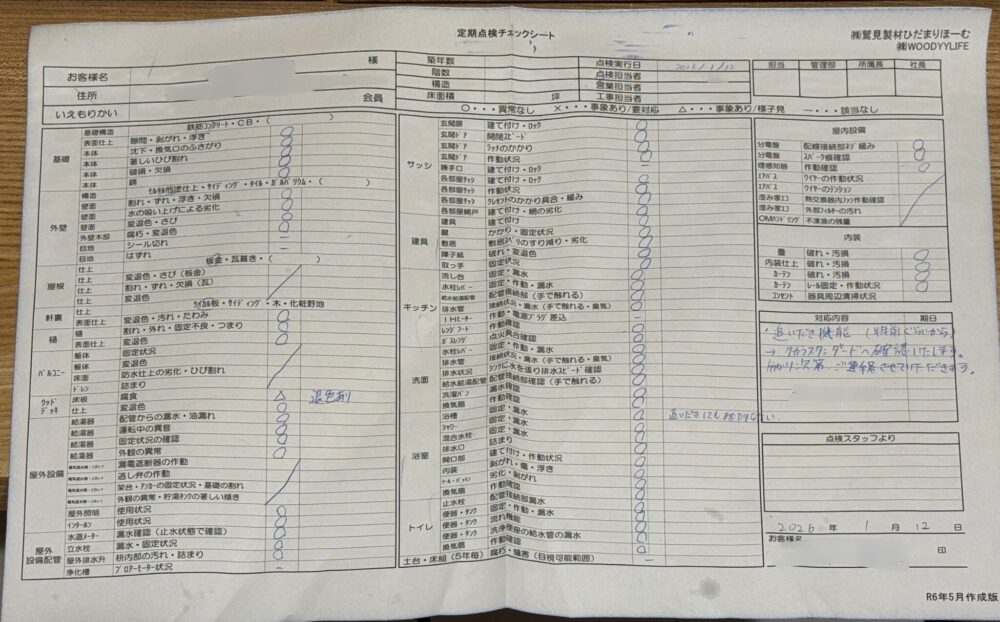 定期点検チェックシート
㈱鷲見製材ひだまりほーむ
㈱WOODYYLIFE
お客様名 様
住所
いえもりかい 会員
築年数
階数
構造
床面積 坪
点検実行日 2026/1/12
点検担当者
営業担当者
工事担当者
担当 管理部 所属長 社長
○・・・異常なし ×・・・事象あり/要対応 △・・・事象あり/様子見 ―・・・該当なし
基礎
基礎構造 鉄筋コンクリート・CB・( )
表面仕上 隙間・剥がれ・浮き ○
本体 沈下・換気口のふさがり ○
本体 著しいひび割れ ○
本体 破損・欠損 ○
本体 錆
外壁
構造 モルタル他塗仕上・サイディング・タイル・ガルバリウム・( )
壁面 割れ・ずれ・浮き・欠損 ○
壁面 水の吸い上げによる劣化 ○
壁面 変退色・さび ○
外壁木部 腐朽・変退色
目地 シール切れ
目地 はずれ
屋根
仕上 板金・瓦葺き・( )
仕上 変退色・さび(板金)
仕上 割れ・ずれ・欠損(瓦)
仕上 変退色
軒裏
ケイカル板・サイディング・木・化粧野地
表面仕上 変退色・汚れ・たわみ ○
樋
樋 割れ・外れ・固定不良・つまり ○
表面仕上 変退色 ○
バルコニー
躯体 固定状況
躯体 変退色
床面 防水仕上の劣化・ひび割れ
ドレン 詰まり
ウッドデッキ
床板 腐食 △ 退色あり
仕上 変退色 ○
屋外設備
給湯器 配管からの漏水・油漏れ ○
給湯器 運転中の異音 ○
給湯器 固定状況の確認 ○
給湯器 外観の異常 ○
漏電遮断器の作動
逃し弁の作動
架台・アンカーの固定状況・基礎の割れ
外観の異常・貯湯タンクの著しい傾き
屋外照明 使用状況 ○
インターホン 使用状況 ○
屋外設備配管
水道メーター 漏水確認(止水状態で確認) ○
立水栓 漏水・固定状況 ○
屋外排水升 枡内部の汚れ・詰まり ○
浄化槽 ブロアーモーター状況 ―
サッシ
玄関扉 建て付け・ロック ○
玄関ドア 開閉スピード ○
玄関ドア ラッチのかかり ○
玄関ドア 作動状況 ○
勝手口 建て付け・ロック
各部屋サッシ 建て付け・ロック ○
各部屋サッシ 作動状況 ○
各部屋サッシ クレセントのかかり具合・緩み ○
各部屋網戸 建て付・網の劣化 ○
建具
建具 建て付け ○
鍵 かかり・固定状況 ○
敷居 敷居スベリのすり減り・劣化 ○
障子紙 破れ・変退色 ○
取っ手 固定状況 ○
キッチン
流し台 固定・漏水 ○
水栓レバー 固定・作動・漏水 ○
給水給湯配管 配管接続部(手で触れる) ○
排水管 接続状況・漏水(手で触れる・臭気) ○
IHヒーター 作動・電源プラグ差込 ―
レンジフード 作動確認 ○
ガスレンジ 点火具合確認 ○
洗面
水栓レバー 固定・作動・漏水 ○
排水管 接続状況・漏水(手で触れる・臭気) ○
排水状況 タンクに水を張り排水スピード確認 ○
給水給湯配管 配管接続部確認(手で触れる) ○
洗濯パン 漏水確認 ○
換気扇 作動確認 ○
浴室
浴槽 固定・漏水 ○
シャワー 固定・漏水 ○
混合水栓 固定・漏水 ○
排水口 詰まり ○
開口部 建て付・作動状況 ○
内装 剥がれ・傷・浮き ○
シール・パッキン 劣化・剥がれ ○
換気扇 作動確認 ○
トイレ
止水栓 配管接続部漏水 ○
便器・タンク 固定・作動・漏水 ○
便器・タンク 流れ機能 ○
便器・タンク 洗浄便座の給水管の漏水 ○
換気扇 作動確認 ○
土台・床組(5年毎) 腐朽・蟻害(目視可能範囲) ―
屋内設備
分電盤 配線接続部ネジ緩み ○
分電盤 スパーク痕確認 ○
煙感知器 作動確認 ○
エアパス ワイヤーの作動状況
エアパス ワイヤーのテンション
澄み家エコ 熱交換器内ファン作動確認
澄み家エコ 外部フィルターの汚れ
OMハンドリング 不凍液の残量
内装
畳 破れ・汚損 ○
内装仕上 破れ・汚損 ○
カーテン 破れ・汚損 ○
カーテン レール固定・作動状況 ○
コンセント 器具周辺清掃状況
対応内容 期日
・追いだき機能(半年前ぐらいから)
→タカラスタンダードへ確認いたします。
分かり次第ご連絡させていただきます。
点検スタッフより
2026 年 1 月 12 日
お客様名
印
R6年5月作成版